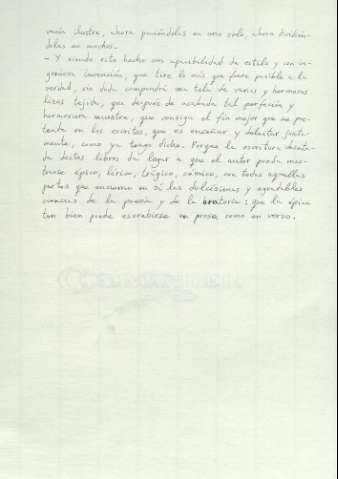 varón ilustre, ahora poniéndolas en uno solo, ahora dividién-
dolas en muchos.
- Y siendo esto hecho con apacibilidad de estilo y con in-
geniosa invención, que tire lo más que fuere posible a la
verdad, sin duda compondrá una tela de varios y hermosos
lizos tejida, que después de acabada tal perfeción y
hermosura muestre, que consiga el fin mejor que se pre-
tende en los escritos, que es enseñar y deleitar junta-
mente, como ya tengo dicho. Porque la escritura desata-
da destos libros da lugar a que el autor pueda mos-
trarse épico, lírico, trágico, cómico, con todas aquellas
partes que encierran en sí las dulcísimas y agradables
ciencias de la poesía y de la oratoria: que la épica
tan bien puede escrebirse en prosa como en verso.